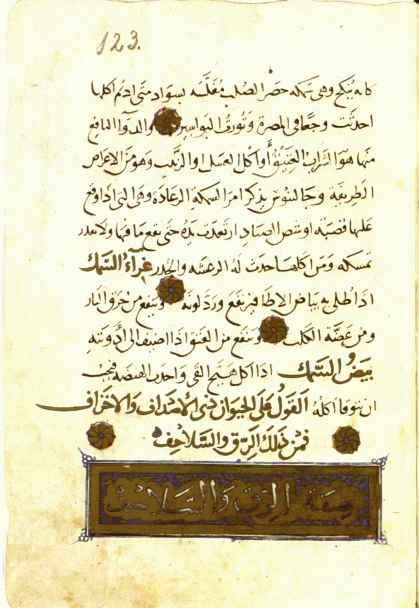 123.
وهي سمكة
احدثت وجعا في المعدة وتورث البواسير والدوا النافع
منها هو الشراب العتيق او اكل العسل او الزبيب وهو من الاعراض
الطريفة وجالينوس يذكر امر السمكة الرعادة وهي التي اذا وقع
عليها قصبة او شص الصياد ارتعدت يده حتى يقع ما فيها ولا يقدر
يمسكه ومن اكلها حدث له الرعشة والخدر غرآء السمك
اذا طلي ببياض الاظافير نفع ورد لونه وينفع من حرق النار
ومن عضة الكلب وينفع من الفتق اذا اضيف الى ادويته
بيض السمك اذا اكل هيج القي واحدث الهيضة فيجب
ان يتوقا اكله القول على الحيوان ذي الاصداف والاخزاف
فمن ذلك الرق والسلاحف
صفة الرق والسلاحف